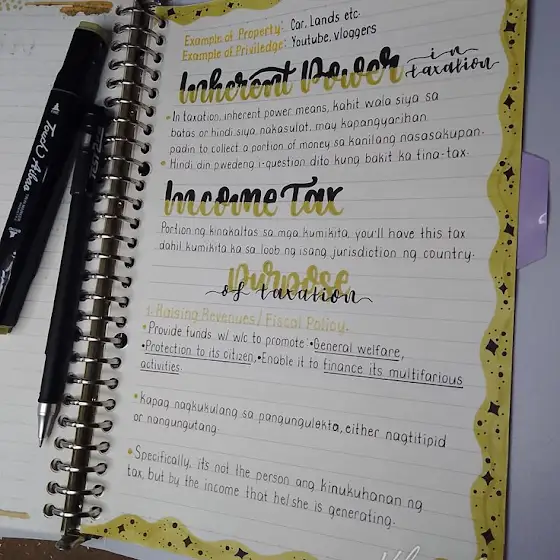 Example of Property: Car, Lands etc.
Example of Priviledge: Youtube, vloggers
Inherent Power in taxation
• In taxation, inherent power means, kahit wala siya sa
batas or hindi siya nakasulat, may kapangyarihan
padin to collect a portion of money sa kanilang nasasakupan.
• Hindi din pwedeng i-question dito kung bakit ka tina-tax.
Income Tax
Portion ng kinakaltas sa mga kumikita, you'll have this tax
dahil kumikita ka sa loob ng isang jurisdiction ng country.
Purpose
of taxation
1. Raising Revenues / Fiscal Policy.
• Provide funds w/ w/c to promote • General welfare,
• Protection to its citizen, • Enable it to finance its multifarious
activities.
• Kapag nagkukulang sa pangungulekta, either nagtitipid
or nangungutang.
• Specifically, its not the person ang kinukuhanan ng
tax, but by the income that he/she is generating.
Touch